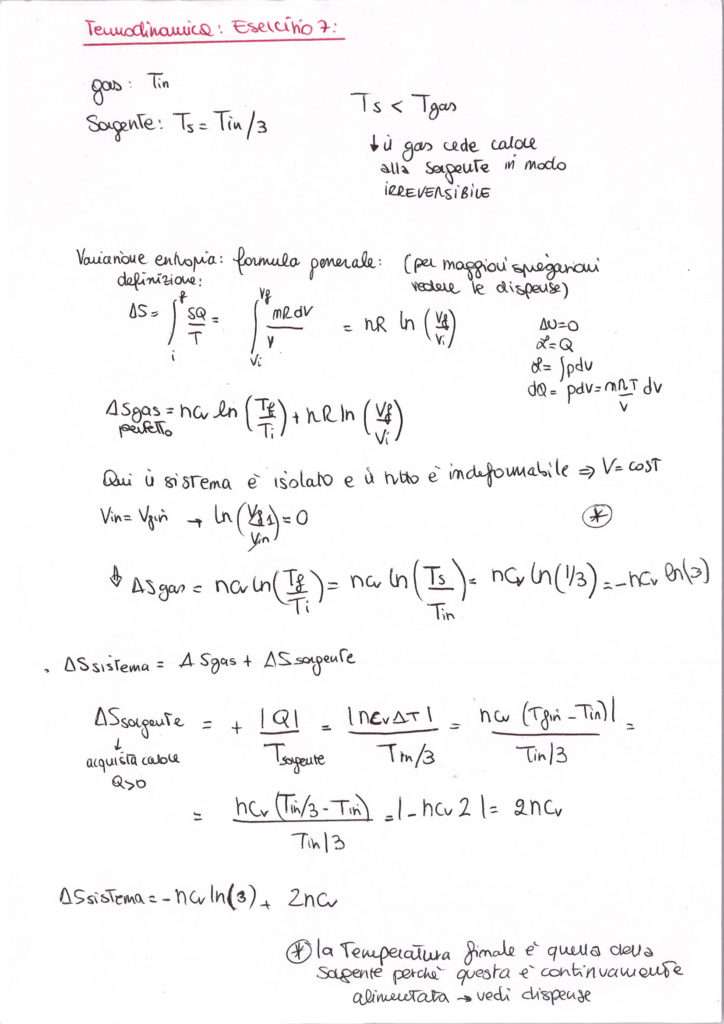 Termodinamica: Esercizio 7:
gas: Tin
Sorgente: Ts = Tin/3
Ts < Tgas
↓ il gas cede calore
alla sorgente in modo
IRREVERSIBILE
Variazione entropia: formula generale: (per maggiori spiegazioni
definizione: vedere le dispense)
ΔS = ∫_i^f δQ/T = ∫_Vi^Vf nR dV/V = nR ln (Vf/Vi)
ΔU=0
L=Q
L= ∫pdv
dQ = pdv = nRT/V dv
ΔSgas = ncv ln (Tf/Ti) + nR ln (Vf/Vi)
perfetto
Qui il sistema è isolato e il tutto è indeformabile ⇒ V= cost
Vin = Vfin → ln(Vfin/Vin) = 0 (*)
↓ ΔSgas = ncv ln(Tf/Ti) = ncv ln (Ts/Tin) = ncv ln(1/3) = -ncv ln(3)
. ΔSsistema = ΔSgas + ΔSsorgente
ΔSsorgente = + |Q|/Tsorgente = |ncvΔT|/Tin/3 = ncv (Tfin - Tin)|/Tin/3 =
↓
acquista calore
Q>0
= ncv (Tin/3 - Tin)/Tin/3 = |-ncv 2| = 2ncv
ΔSsistema = -ncv ln(3) + 2ncv
(*) la Temperatura finale è quella della
sorgente perchè questa è continuamente
alimentata → vedi dispense